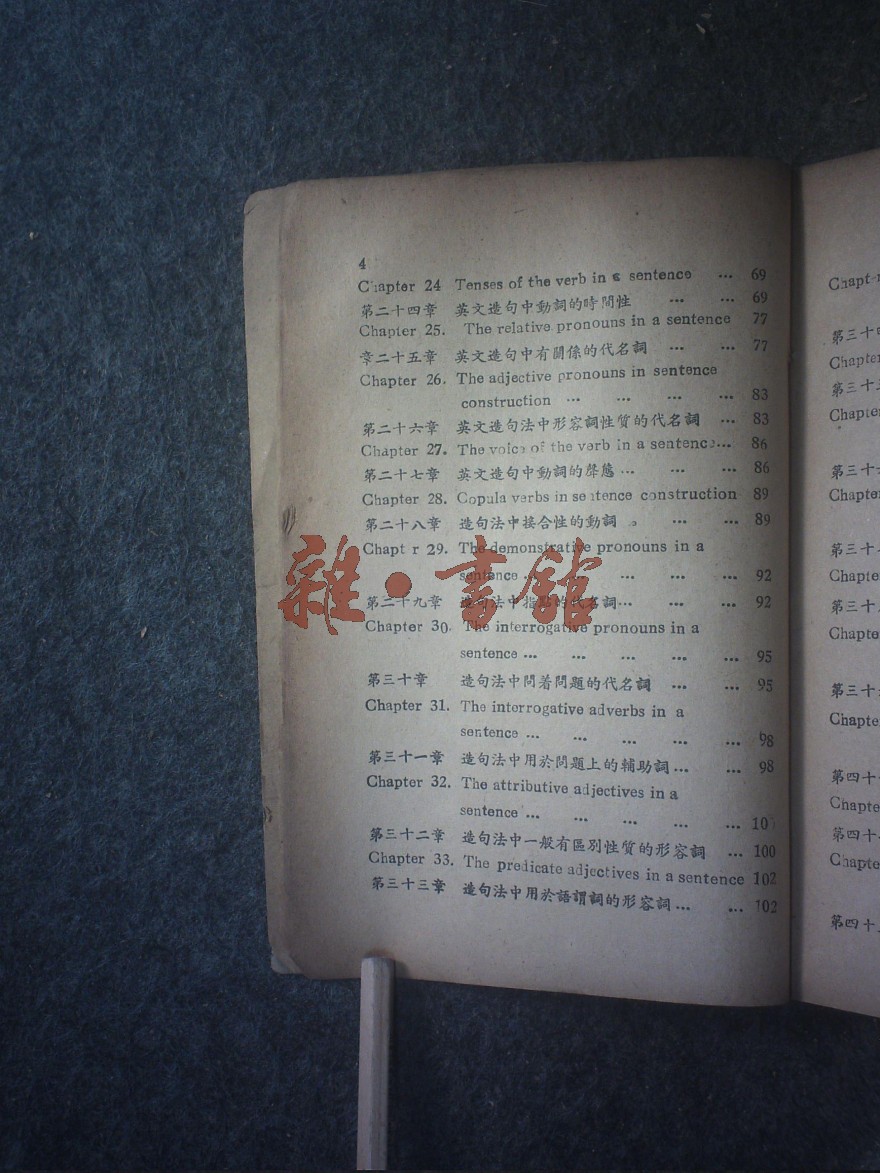 4
Chapter 24 Tenses of the verb in a sentence ... 69
第二十四章 英文造句中動詞的時間性 ... ... 69
Chapter 25. The relative pronouns in a sentence 77
章二十五章 英文造句中有關係的代名詞 ... ... 77
Chapter 26. The adjective pronouns in sentence
construction ... ... ... ... 83
第二十六章 英文造句法中形容詞性質的代名詞 ... 83
Chapter 27. The voice of the verb in a sentence... 86
第二十七章 英文造句中動詞的聲態... ... ... 86
Chapter 28. Copula verbs in sentence construction 89
第二十八章 造句法中接合性的動詞 。 ... ... 89
Chapt r 29. The demonstrative pronouns in a
sentence ... ... ... ... ... 92
第二十九章 造句法中指點的代名詞... ... ... 92
Chapter 30. The interrogative pronouns in a
sentence ... ... ... ... ... 95
第三十章 造句法中問着問題的代名詞 ... ... 95
Chapter 31. The interrogative adverbs in a
sentence ... ... ... ... ... 98
第三十一章 造句法中用於問題上的輔助詞... ... 98
Chapter 32. The attributive adjectives in a
sentence ... ... ... ... ...
第三十二章 造句法中一般有區別性質的形容詞 ... 100
Chapter 33. The predicate adjectives in a sentence 102
第三十三章 造句法中用於語謂詞的形容詞... ... 102
雜·書館
第三十
Chapter
第三十
Chapter
第三十
Chapter
第三十
Chapter
第三十
Chapter
第三十
Chapter
第四十
Chapter
第四十
Chapter
第四十